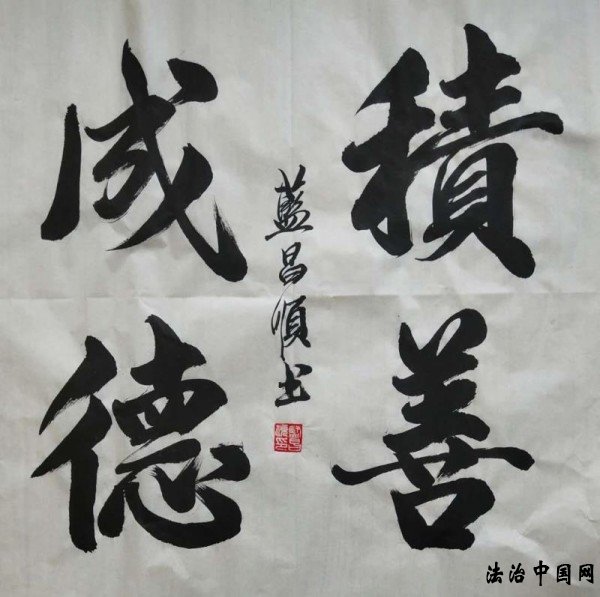 積善
成德
藍昌順书
法治中国网